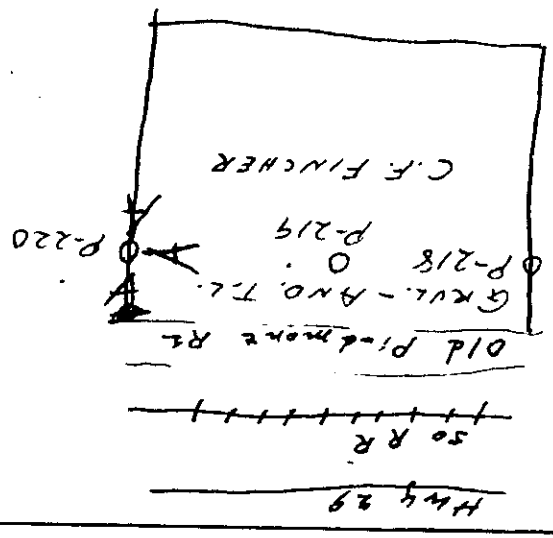 Hwy 29
So R R
Old Piedmont Rd
GRVL. - AND. T.L.
P-218
P-219
P-220
C.F. FINCHER